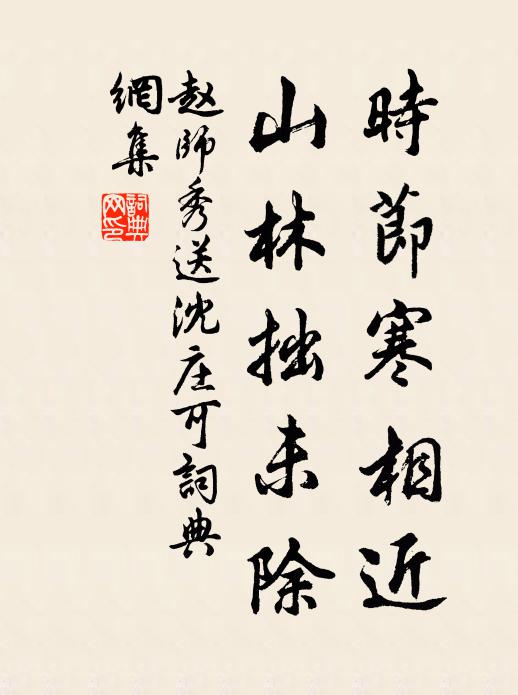 時節寒相近
山林拙未除
趙師秀送沈庄可詞典
網集
詞典網印